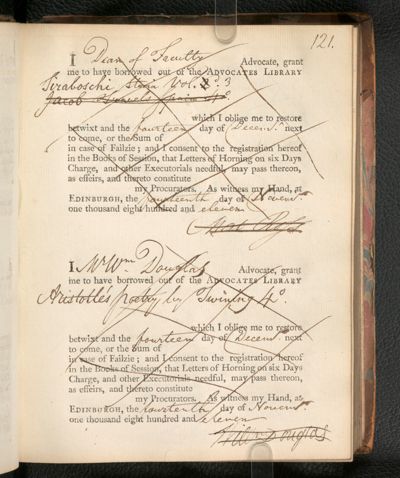 121.
I Dean of Faculty Advocate, grant
me to have borrowed out of the ADVOCATES LIBRARY
Tiraboschi Vol. 3
Jacob
which I oblige me to restore
betwixt and the fourteen day of Decemr. next
to come, or the Sum of
in case of Failzie; and I consent to the registration hereof
in the Books of Session, that Letters of Horning on six Days
Charge, and other Executorials needful, may pass thereon,
as effeirs, and thereto constitute
my Procurators. As witness my Hand, at
EDINBURGH, the fourteenth day of Novemr.
one thousand eight hundred and eleven
I, Mr Wm. Douglas Advocate, grant
me to have borrowed out of the ADVOCATES LIBRARY
Aristotles poetry by Twining 4o.
which I oblige me to restore
betwixt and the fourteen day of Decemr. next
to come, or the Sum of
in case of Failzie; and I consent to the registration hereof
in the Books of Session, that Letters of Horning on six Days
Charge, and other Executorials needful, may pass thereon,
as effeirs, and thereto constitute
my Procurators. As witness my Hand, at
EDINBURGH, the fourtenth day of Novemr.
one thousand eight hundred and eleven
Douglas